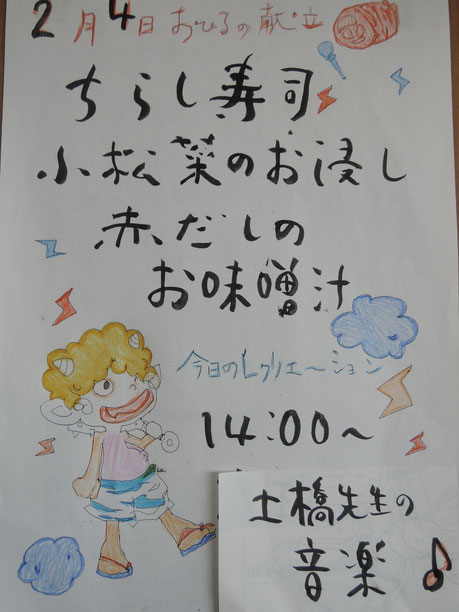 2月4日 おひるの献立
ちらし寿司
小松菜のお浸し
赤だしの
お味噌汁
今日のレクリエーション
14:00〜
土橋先生の
音楽♪